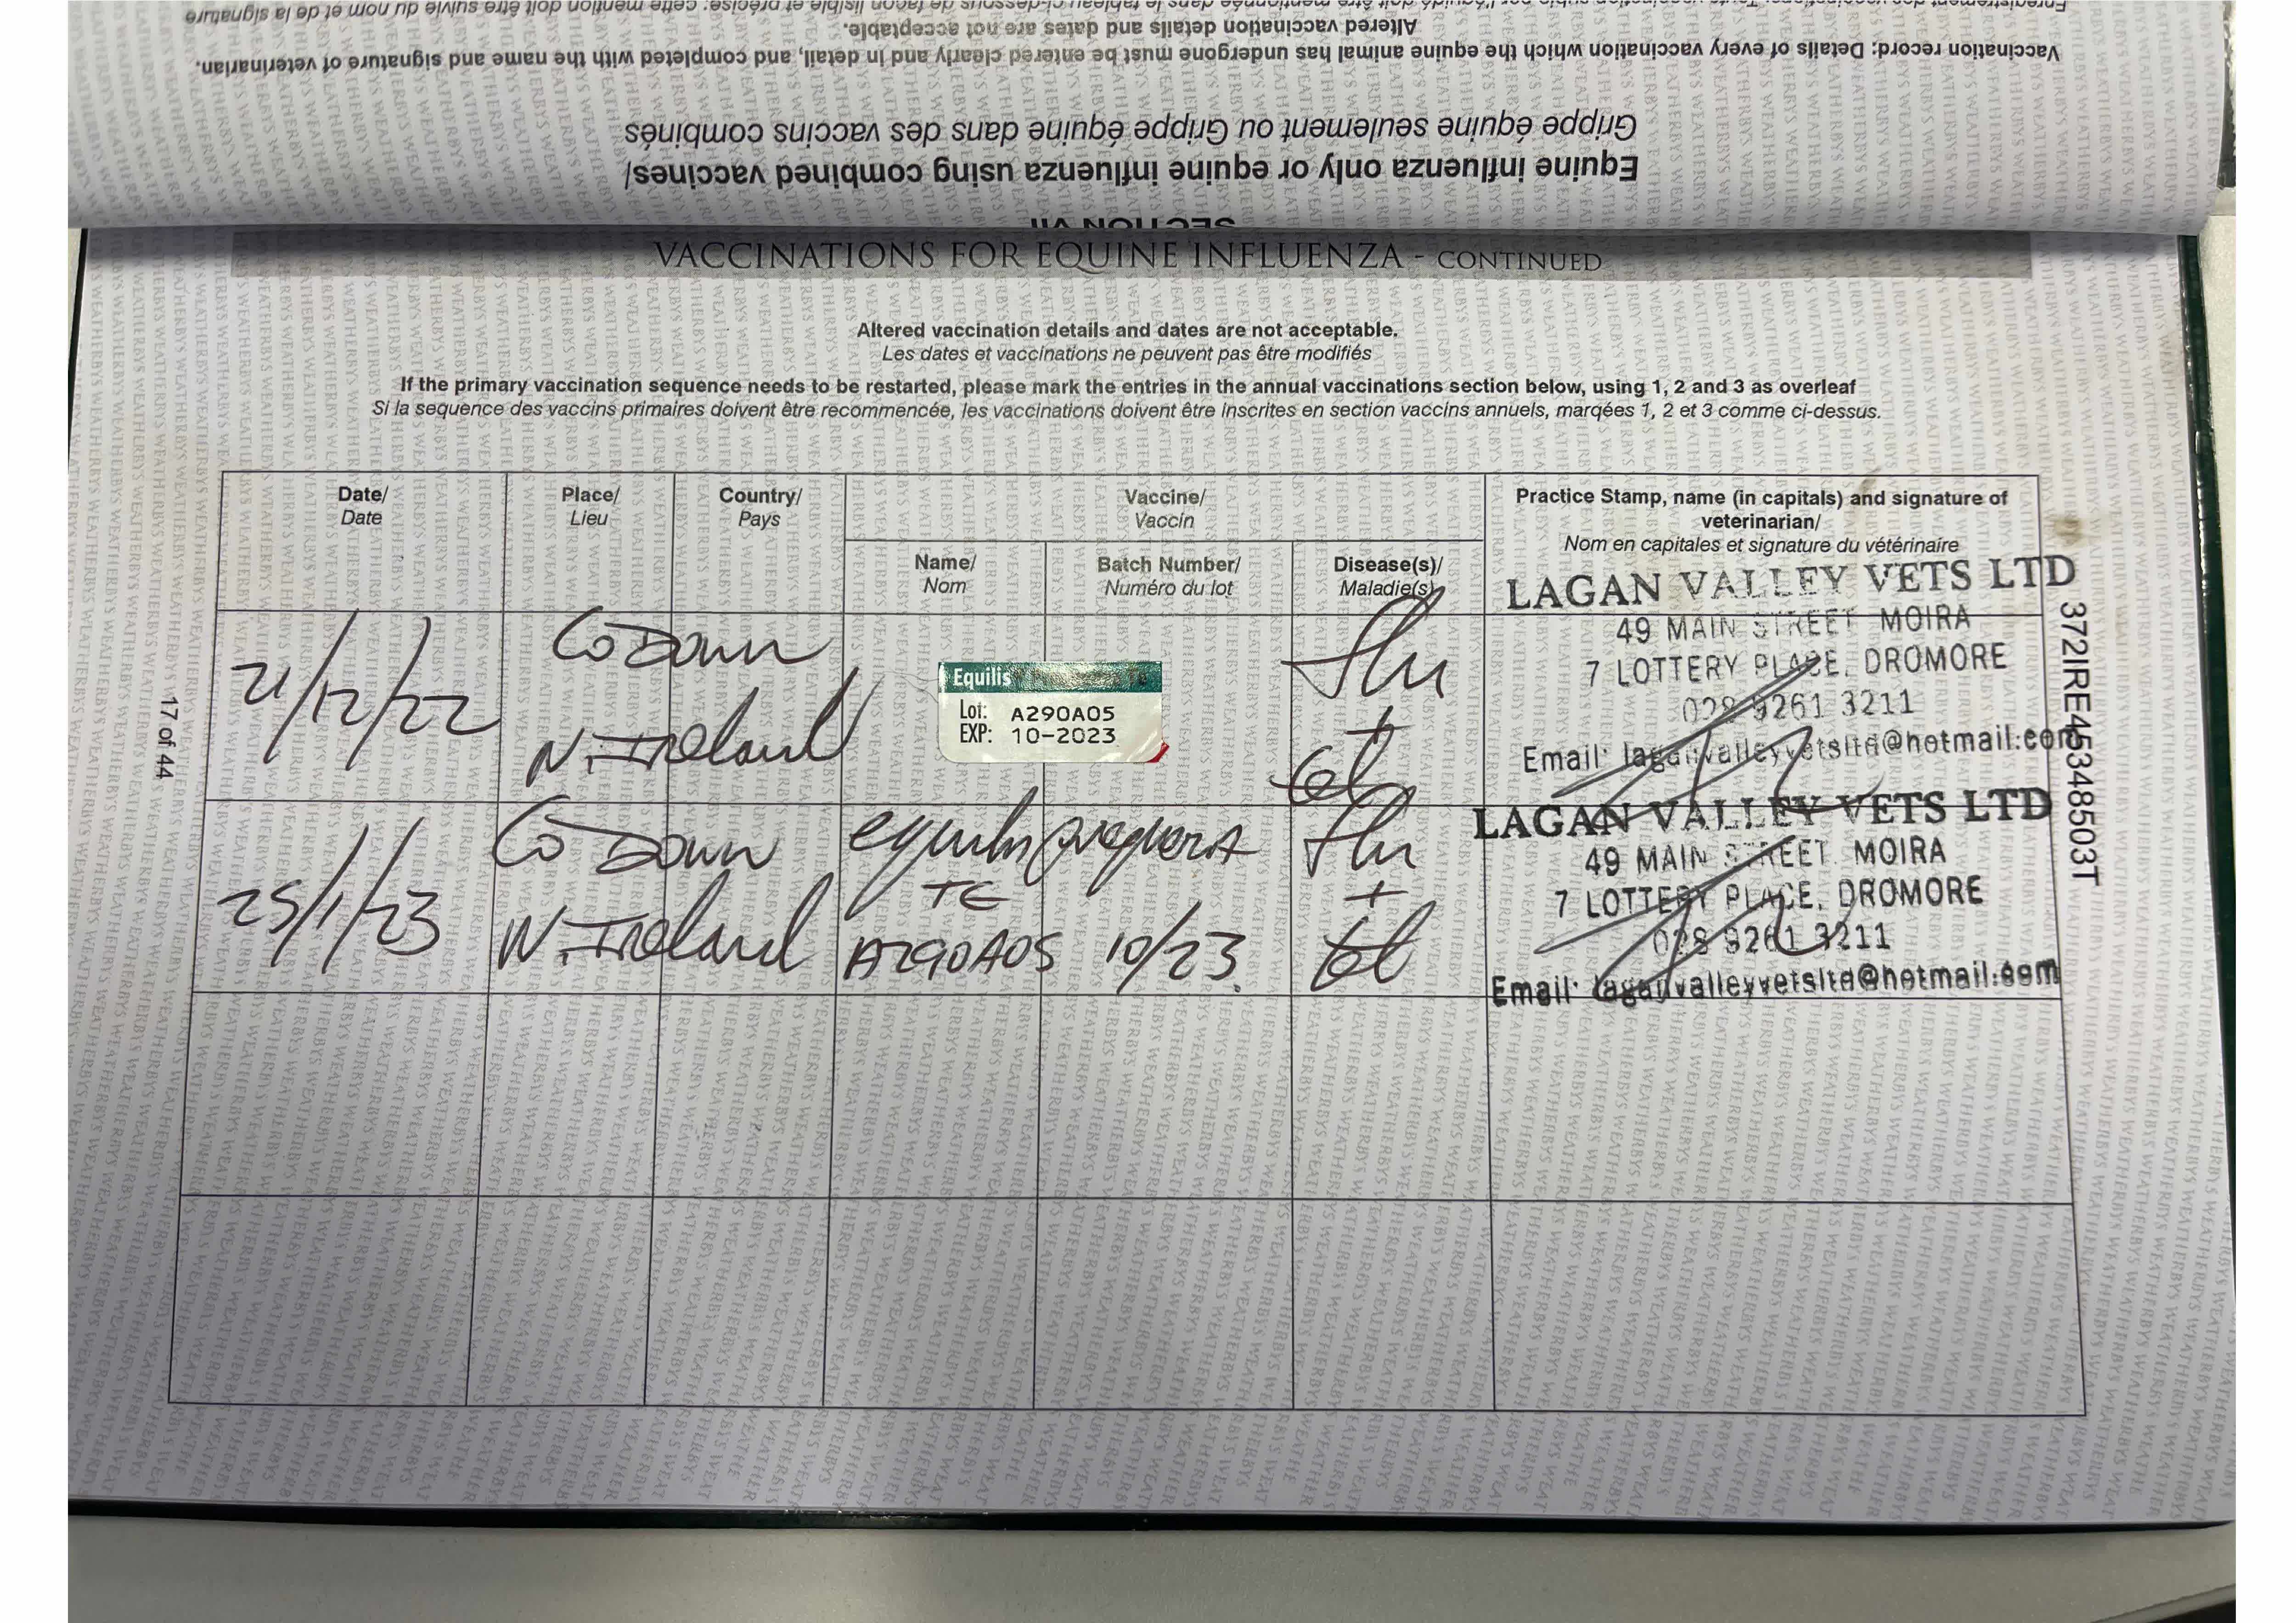 Enregistrement des vaccinations:
Altered vaccination details and dates are not acceptable.
Vaccination record: Details of every vaccination which the equine animal has undergone must be entered clearly and in detail, and completed with the name and signature of veterinarian.
Grippe équine seulement ou Grippe équine dans des vaccins combinés
Equine influenza only or equine influenza using combined vaccines/
SECTION VII
VACCINATIONS FOR EQUINE INFLUENZA - CONTINUED
Altered vaccination details and dates are not acceptable.
Les dates et vaccinations ne peuvent pas être modifiés
If the primary vaccination sequence needs to be restarted, please mark the entries in the annual vaccinations section below, using 1, 2 and 3 as overleaf
Si la sequence des vaccins primaires doivent être recommencée, les vaccinations doivent être inscrites en section vaccins annuels, marqées 1, 2 et 3 comme ci-dessus.
Date/
Date
Place/
Lieu
Country/
Pays
Vaccine/
Vaccin
Name/
Nom
Batch Number/
Numéro du lot
Disease(s)/
Maladie(s)
Practice Stamp, name (in capitals) and signature of
veterinarian/
Nom en capitales et signature du vétérinaire
21/12/22
Co Down
N. Ireland
Equilis
Lot: A290A05
EXP: 10-2023
flu
+
tet
LAGAN VALLEY VETS LTD
49 MAIN STREET MOIRA
7 LOTTERY PLACE, DROMORE
028 9261 3211
Email: laganvalleyvetsltd@hotmail.com
25/1/23
Co Down
N. Ireland
equilis prequenza
TE
A290A05 10/23.
flu
+
tet
LAGAN VALLEY VETS LTD
49 MAIN STREET MOIRA
7 LOTTERY PLACE, DROMORE
028 9261 3211
Email: laganvalleyvetsltd@hotmail.com
372IRE45348503T
17 of 44